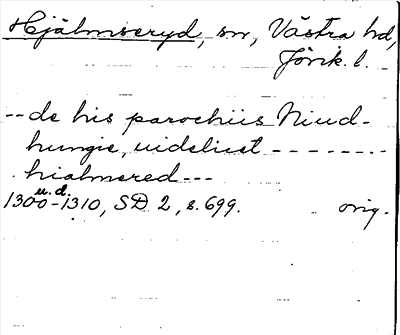 Hjälmseryd, sn, Västra hd,
Jönk. l.
-- de his parochiis Niud-
hungie, uidelicet --------
hialmsred ---
u.d.
1300-1310, SD 2, s. 699. orig.